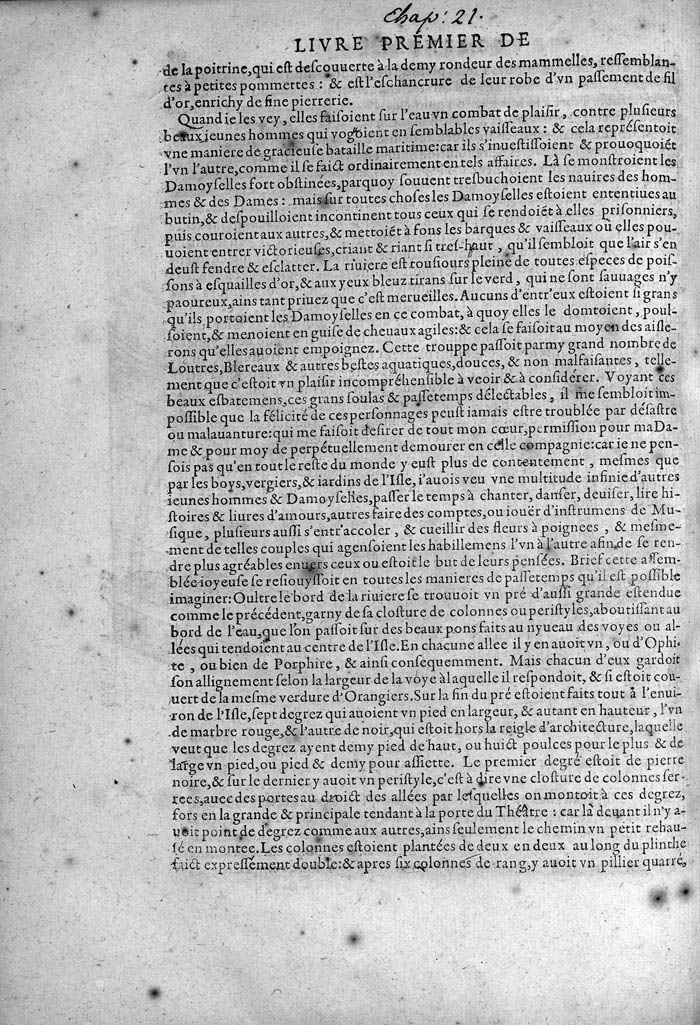 Chap: 21.
LIVRE PREMIER DE
de la poitrine, qui est descouuerte à la demy rondeur des mammelles, ressemblan-
tes à petites pommettes: & est l'eschancrure de leur robe d'vn passement de fil
d'or, enrichy de fine pierrerie.
Quand ie les vey, elles faisoient sur l'eau vn combat de plaisir, contre plusieurs
beaux ieunes hommes qui vogoient en semblables vaisseaux: & cela représentoit
vne maniere de gracieuse bataille maritime: car ils s'inuestissoient & prouoquoiét
l'vn l'autre, comme il se faict ordinairement en tels affaires. Là se monstroient les
Damoyselles fort obstinées, parquoy souuent tresbuchoient les nauires des hom-
mes & des Dames: mais sur toutes choses les Damoyselles estoient ententiues au
butin, & despouilloient incontinent tous ceux qui se rendoiét à elles prisonniers,
puis couroient aux autres, & mettoiét à fons les barques & vaisseaux ou elles pou-
uoient entrer victorieuses, criant & riant si tres-haut, qu'il sembloit que l'air s'en
deust fendre & esclatter. La riuiere est rousiours pleine de toutes especes de pois-
sons à esquailles d'or, & aux yeux bleuz tirans sur le verd, qui ne sont sauuages n'y
paoureux, ains tant priuez que c'est merueilles. Aucuns d'entr'eux estoient si grans
qu'ils portoient les Damoyselles en ce combat, à quoy elles le domtoient, poul-
soient, & menoient en guise de cheuaux agiles: & cela se faisoit au moyen des aisle-
rons qu'elles auoient empoignez. Cette trouppe passoit parmy grand nombre de
Loutres, Blereaux & autres bestes aquatiques, douces, & non malfaisantes, telle-
ment que c'estoit vn plaisir incompréhensible à veoir & à considérer. Voyant ces
beaux esbatemens, ces grans soulas & passetemps délectables, il me sembloit im-
possible que la félicité de ces personnages peust iamais estre troublée par désastre
ou malauanture: qui me faisoit desirer de tout mon cœur, permission pour ma Da-
me & pour moy de perpétuellement demourer en celle compagnie: car ie ne pen-
sois pas qu'en tout le reste du monde y eust plus de contentement, mesmes que
par les boys, vergiers, & iardins de l'Isle, i'auois veu vne multitude infinie d'autres
ieunes hommes & Damoyselles, passer le temps à chanter, danser, deuiser, lire hi-
stoires & liures d'amours, autres faire des comptes, ou iouër d'instrumens de Mu-
sique, plusieurs aussi s'entr'accoler, & cueillir des fleurs à poignees, & mesme-
ment de telles couples qui agensoient les habillemens l'vn à l'autre afin de se ren-
dre plus agréables enuers ceux ou estoit le but de leurs pensées. Brief cette assem-
blée ioyeuse se resiouyssoit en toutes les manieres de passetemps qu'il est possible
imaginer: Oultre le bord de la riuiere se trouuoit vn pré d'aussi grande estendue
comme le précédent, garny de sa closture de colonnes ou peristyles, aboutissant au
bord de l'eau, que l'on passoit sur des beaux pons faits au nyueau des voyes ou al-
lées qui tendoient au centre de l'Isle. En chacune allee il y en auoit vn, ou d'Ophi-
te, ou bien de Porphire, & ainsi consequemment. Mais chacun d'eux gardoit
son allignement selon la largeur de la voye à laquelle il respondoit, & si estoit cou-
uert de la mesme verdure d'Orangiers. Sur la fin du pré estoient faits tout à l'enui-
ron de l'Isle, sept degrez qui auoient vn pied en largeur, & autant en hauteur, l'vn
de marbre rouge, & l'autre de noir, qui estoit hors la reigle d'architecture, laquelle
veut que les degrez ayent demy pied de haut, ou huict poulces pour le plus & de
large vn pied, ou pied & demy pour assiette. Le premier degré estoit de pierre
noire, & sur le dernier y auoit vn peristyle, c'est à dire vne closture de colonnes ser-
rees, auec des portes au droict des allées par lesquelles on montoit à ces degrez,
fors en la grande & principale tendant à la porte du Théâtre: car là deuant il n'y a-
uoit point de degrez comme aux autres, ains seulement le chemin vn petit rehaus-
sé en montee. Les colonnes estoient plantées de deux en deux au long du plinthe
faict expressément double: & apres six colonnes de rang, y auoit vn pillier quarré,